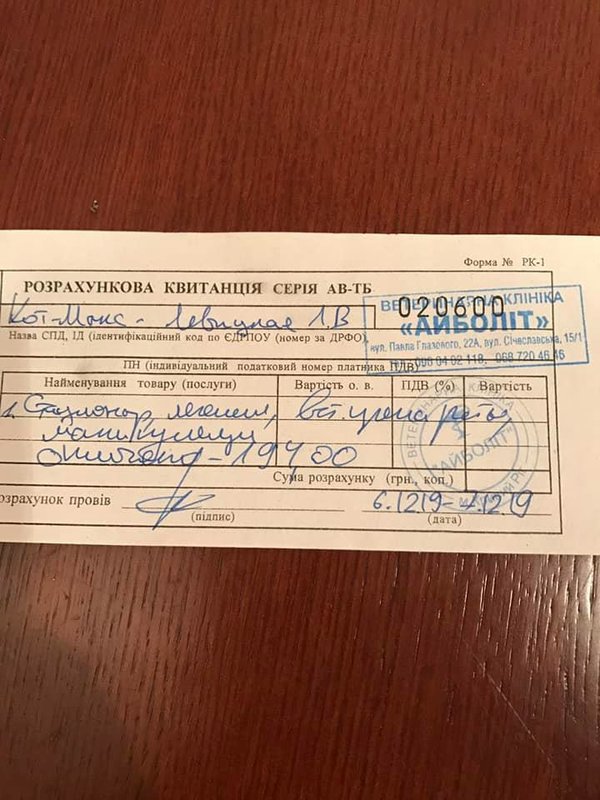 Форма № РК-1
РОЗРАХУНКОВА КВИТАНЦІЯ СЕРІЯ АВ-ТБ
020600
ВЕТЕРИНАРНА КЛІНІКА
«АЙБОЛІТ»
вул. Павла Глазового, 22А, вул. Січеславська, 15/1
096 04 02 118, 068 720 46 46
Кот-Макс - Левицкая Л.В
Назва СПД, ІД (ідентифікаційний код по ЄДРПОУ (номер за ДРФО)
ПН (індивідуальний податковий номер платника ПДВ)
Найменування товару (послуги) Вартість о. в. ПДВ (%) Вартість
Стационар, лечение, вет. препараты,
манипуляции
оплачено - 19400
ВЕТЕРИНАРНА КЛІНІКА
"АЙБОЛІТ"
Сума розрахунку (грн., коп.)
озрахунок провів 6.12.19-7.12.19
(підпис) (дата)